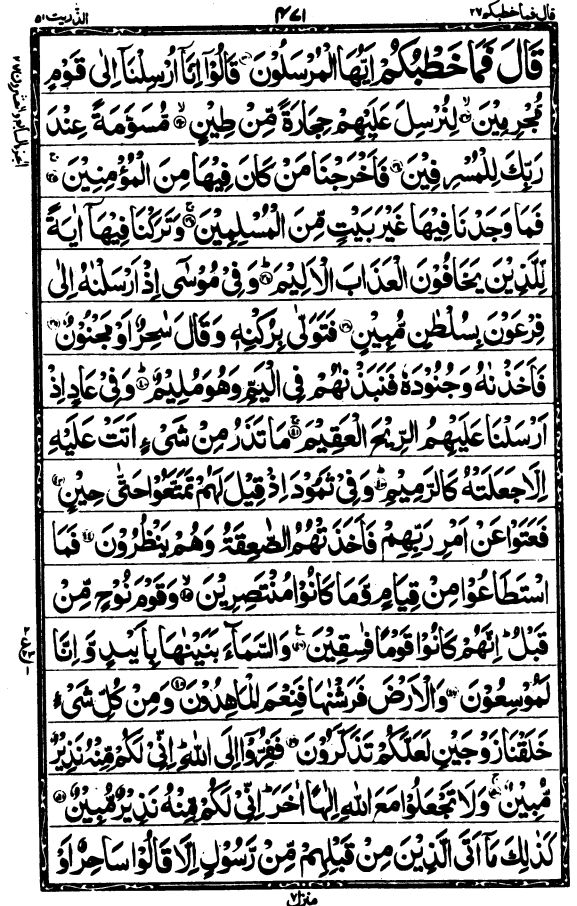 قال فما خطبكم ٢٧
٤٧١
الذّٰريٰت ٥١
قَالَ فَمَا خَطْبُكُمْ اَيُّهَا الْمُرْسَلُوْنَ ۟ قَالُوْۤا اِنَّاۤ اُرْسِلْنَاۤ اِلٰى قَوْمٍ
مُّجْرِمِيْنَ ۟ۙ لِنُرْسِلَ عَلَيْهِمْ حِجَارَةً مِّنْ طِيْنٍ ۟ۙ مُّسَوَّمَةً عِنْدَ
رَبِّكَ لِلْمُسْرِفِيْنَ ۟ فَاَخْرَجْنَا مَنْ كَانَ فِيْهَا مِنَ الْمُؤْمِنِيْنَ ۟ۚ
فَمَا وَجَدْنَا فِيْهَا غَيْرَ بَيْتٍ مِّنَ الْمُسْلِمِيْنَ ۟ۚ وَتَرَكْنَا فِيْهَاۤ اٰيَةً
لِّلَّذِيْنَ يَخَافُوْنَ الْعَذَابَ الْاَلِيْمَ ۟ؕ وَفِيْ مُوْسٰۤى اِذْ اَرْسَلْنٰهُ اِلٰى
فِرْعَوْنَ بِسُلْطٰنٍ مُّبِيْنٍ ۟ فَتَوَلّٰى بِرُكْنِهٖ وَقَالَ سٰحِرٌ اَوْ مَجْنُوْنٌ ۟
فَاَخَذْنٰهُ وَجُنُوْدَهٗ فَنَبَذْنٰهُمْ فِي الْيَمِّ وَهُوَ مُلِيْمٌ ۟ؕ وَفِيْ عَادٍ اِذْ
اَرْسَلْنَا عَلَيْهِمُ الرِّيْحَ الْعَقِيْمَ ۟ۚ مَا تَذَرُ مِنْ شَيْءٍ اَتَتْ عَلَيْهِ
اِلَّا جَعَلَتْهُ كَالرَّمِيْمِ ۟ؕ وَفِيْ ثَمُوْدَ اِذْ قِيْلَ لَهُمْ تَمَتَّعُوْا حَتّٰى حِيْنٍ ۟
فَعَتَوْا عَنْ اَمْرِ رَبِّهِمْ فَاَخَذَتْهُمُ الصّٰعِقَةُ وَهُمْ يَنْظُرُوْنَ ۟ فَمَا
اسْتَطَاعُوْا مِنْ قِيَامٍ وَّمَا كَانُوْا مُنْتَصِرِيْنَ ۟ۙ وَقَوْمَ نُوْحٍ مِّنْ
قَبْلُ ؕ اِنَّهُمْ كَانُوْا قَوْمًا فٰسِقِيْنَ ۟ وَالسَّمَآءَ بَنَيْنٰهَا بِاَيْىدٍ وَّاِنَّا
لَمُوْسِعُوْنَ ۟ وَالْاَرْضَ فَرَشْنٰهَا فَنِعْمَ الْمٰهِدُوْنَ ۟ وَمِنْ كُلِّ شَيْءٍ
خَلَقْنَا زَوْجَيْنِ لَعَلَّكُمْ تَذَكَّرُوْنَ ۟ فَفِرُّوْۤا اِلَى اللّٰهِ ؕ اِنِّيْ لَكُمْ مِّنْهُ نَذِيْرٌ
مُّبِيْنٌ ۟ۚ وَلَا تَجْعَلُوْا مَعَ اللّٰهِ اِلٰهًا اٰخَرَ ؕ اِنِّيْ لَكُمْ مِّنْهُ نَذِيْرٌ مُّبِيْنٌ ۟
كَذٰلِكَ مَاۤ اَتَى الَّذِيْنَ مِنْ قَبْلِهِمْ مِّنْ رَّسُوْلٍ اِلَّا قَالُوْا سَاحِرٌ اَوْ
منزل ٧